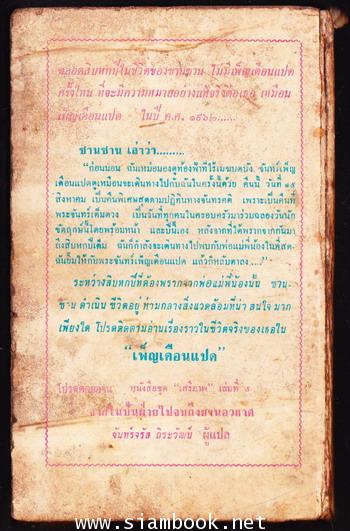 ตลอดสิบหกปีในชีวิตของซานซาน ไม่มีเพ็ญเดือนแปด
ครั้งไหน ที่จะมีความหมายอย่างแท้จริงต่อเธอ เหมือน
เพ็ญเดือนแปด ในปี ค.ศ. ๑๙๖๒......
ซานซาน เล่าว่า.........
"ก่อนนอน ฉันเหม่อมองดูท้องฟ้าที่ไร้เมฆบดบัง จันทร์เพ็ญ
เดือนแปดดูเหมือนจะเดินทางไปกับฉันในครั้งนี้ด้วย คืนนี้ วันที่ ๑๕
สิงหาคม เป็นคืนพิเศษสุดตามปฏิทินทางจันทรคติ เพราะเป็นคืนที่
พระจันทร์เต็มดวง เป็นวันที่ทุกคนในครอบครัวมาร่วมฉลองวันนัก
ขัตฤกษ์นี้โดยพร้อมหน้า และปีนี้เอง หลังจากที่ได้พรากจากกันมา
ถึงสิบหกปีเต็ม ฉันก็กำลังจะเดินทางไปพบกับพ่อแม่พี่น้องในที่สุด
ฉันยิ้มให้กับพระจันทร์เพ็ญเดือนแปด แล้วก็หลับตาลง ....."
ระหว่างสิบหกปีที่ต้องพรากจากพ่อแม่พี่น้องนั้น ซาน-
ซาน ดำเนินชีวิตอยู่ท่ามกลางสิ่งแวดล้อมที่น่า สนใจ มาก
เพียงใด โปรดติดตามอ่านเรื่องราวในชีวิตจริงของเธอใน
"เพ็ญเดือนแปด"
โปรดคอยอ่าน หนังสือชุด "เสรีภาพ" เล่มที่
จันทร์จรัส ถิระวัฒน์ ผู้แปล
www.siambook.net